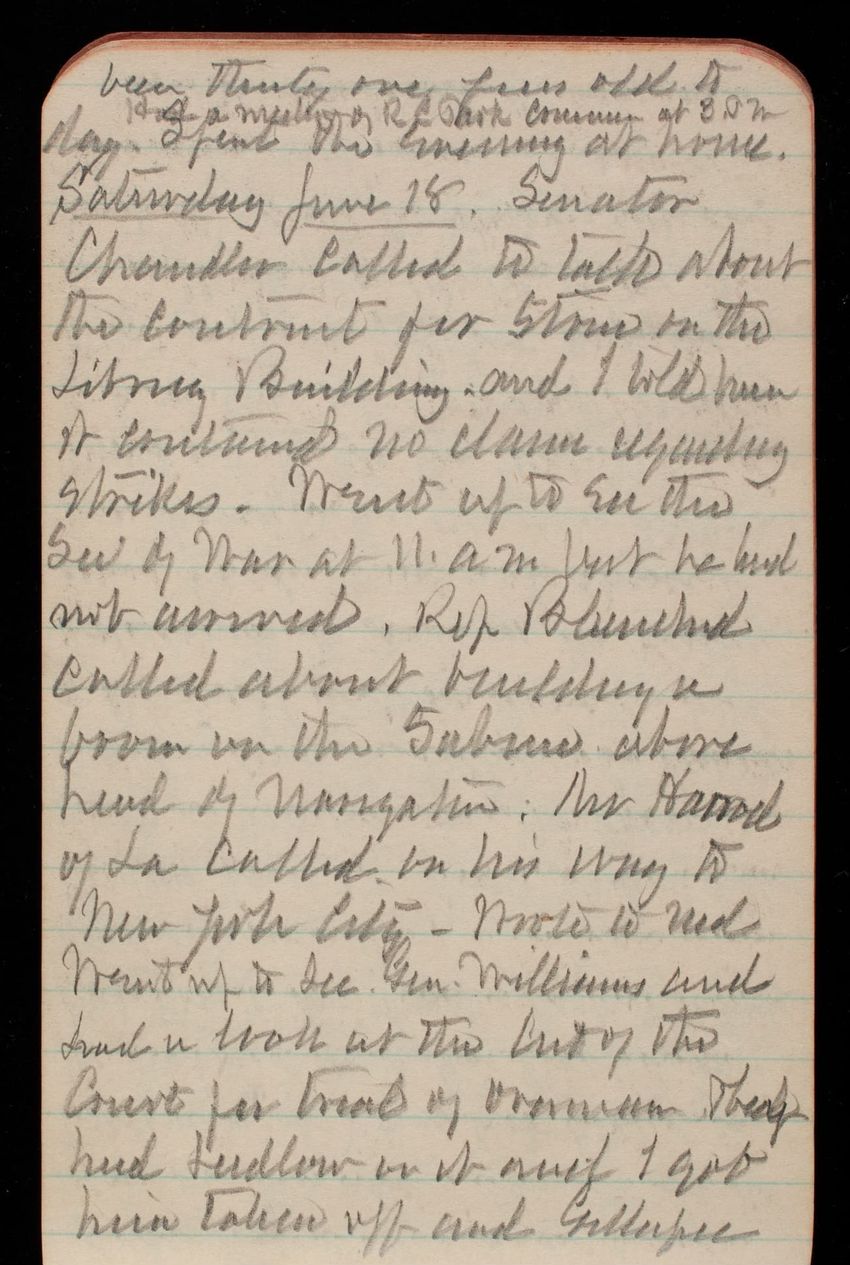 been thirty one years old to
Had a meeting of R C Park Commn at 3 P M
day. Spent the evening at home.
Saturday June 18. Senator
Chandler called to talk about
the contract for stone on the
Library Building. and I told him
it contained no clause regarding
strikes. Went up to see the
Sec of War at 11. a m but he had
not arrived. Rep Blanchard
called about building a
boom on the Sabine above
head of navigation. Mr Harrod
of La called on his way to
New York City - Wrote to Ned
Went up to see Gen. Williams and
had a look at the list of the
Court for trial of They
had Ludlow on it and I got
him taken off and Gillespie